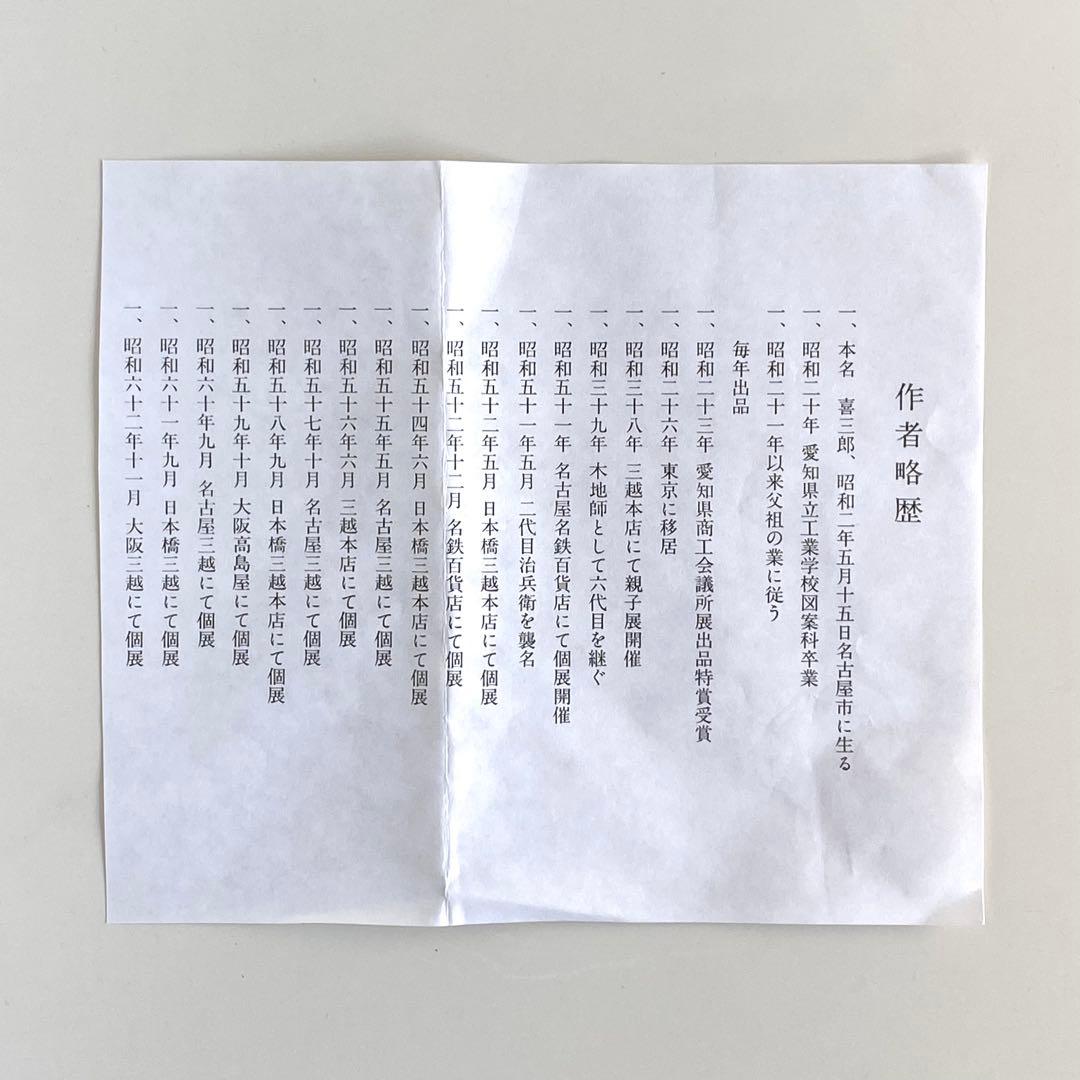 作者略歴
一、本名　喜三郎、昭和二年五月十五日名古屋市に生る
一、昭和二十年 愛知県立工業学校図案科卒業
一、昭和二十一年以来父祖の業に従う
毎年出品
一、昭和二十三年 愛知県商工会議所展出品特賞受賞
一、昭和二十六年 東京に移居
一、昭和三十八年 三越本店にて親子展開催
一、昭和三十九年 木地師として六代目を継ぐ
一、昭和五十一年 名古屋名鉄百貨店にて個展開催
一、昭和五十一年五月 二代目治兵衛を襲名
一、昭和五十二年五月 日本橋三越本店にて個展
一、昭和五十二年十二月 名鉄百貨店にて個展
一、昭和五十四年六月 日本橋三越本店にて個展
一、昭和五十五年五月 名古屋三越にて個展
一、昭和五十六年六月 三越本店にて個展
一、昭和五十七年十月 名古屋三越にて個展
一、昭和五十八年九月 日本橋三越本店にて個展
一、昭和五十九年十月 大阪高島屋にて個展
一、昭和六十年九月 名古屋三越にて個展
一、昭和六十一年九月 日本橋三越にて個展
一、昭和六十二年十一月 大阪三越にて個展